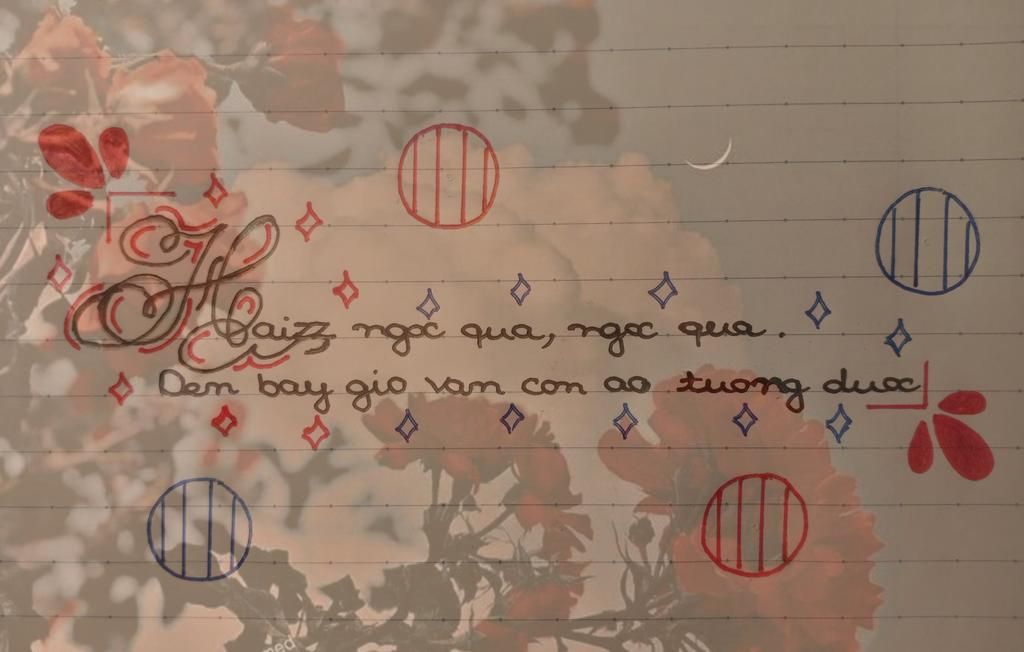 Haizz ngoc qua, ngoc qua.
Den bay gio van con ao tuong duoc